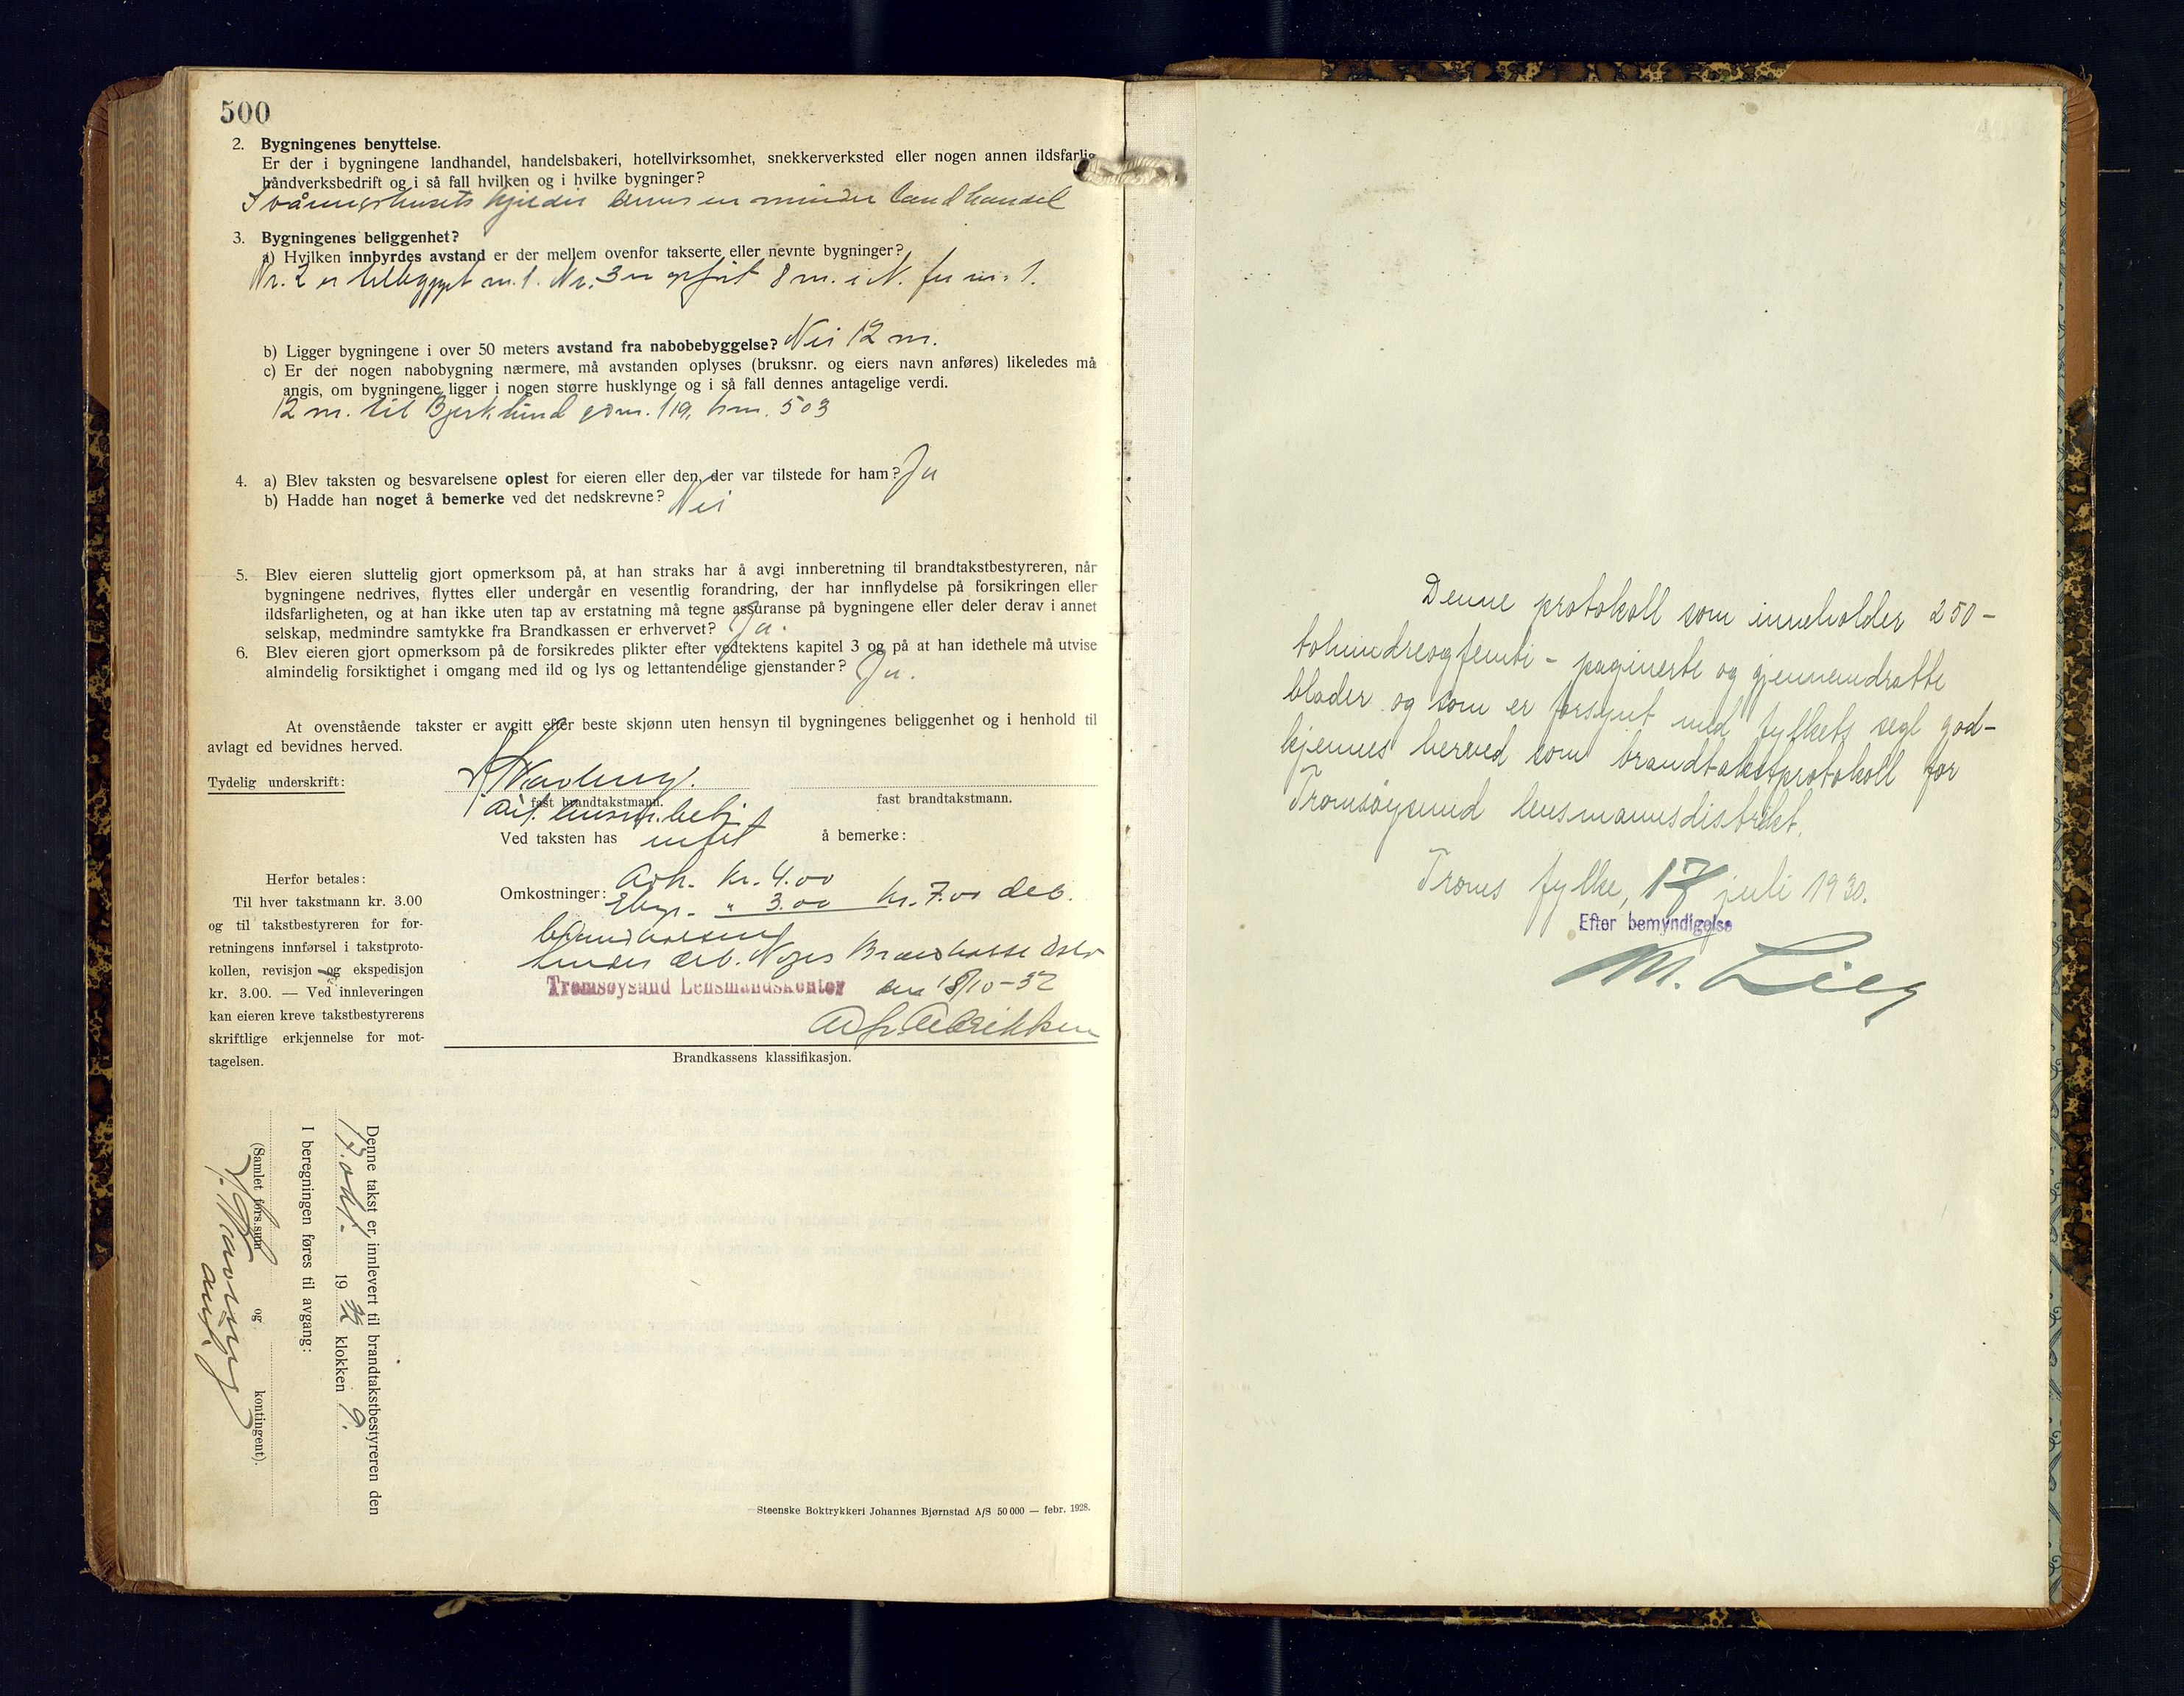 500
2. Bygningenes benyttelse.
Er der i bygningene landhandel, handelsbakeri, hotellvirksomhet, snekkerverksted eller nogen annen ildsfarlig
håndverksbedrift og i så fall hvilken og i hvilke bygninger?
I våningshusets kjelder en mindre landhandel
3. Bygningenes beliggenhet?
a) Hvilken innbyrdes avstand er der mellem ovenfor takserte eller nevnte bygninger?
Nr. 2 er tilbygget nr. 1. Nr. 3 er opført 8 m. i N. for nr. 1.
b) Ligger bygningene i over 50 meters avstand fra nabobebyggelse? Nei 12 m.
c) Er der nogen nabobygning nærmere, må avstanden oplyses (bruksnr. og eiers navn anføres) likeledes må
angis, om bygningene ligger i nogen større husklynge og i så fall dennes antagelige verdi.
12 m. til Bjerklund gnr. 119, bnr. 503
4. a) Blev taksten og besvarelsene oplest for eieren eller den, der var tilstede for ham? Ja
b) Hadde han noget å bemerke ved det nedskrevne? Nei
5. Blev eieren sluttelig gjort opmerksom på, at han straks har å avgi innberetning til brandtakstbestyreren, når
bygningene nedrives, flyttes eller undergår en vesentlig forandring, der har innflydelse på forsikringen eller
ildsfarligheten, og at han ikke uten tap av erstatning må tegne assuranse på bygningene eller deler derav i annet
selskap, medmindre samtykke fra Brandkassen er erhvervet? Ja.
6. Blev eieren gjort opmerksom på de forsikredes plikter efter vedtektens kapitel 3 og på at han idethele må utvise
almindelig forsiktighet i omgang med ild og lys og lettantendelige gjenstander? Ja.
At ovenstående takster er avgitt efter beste skjønn uten hensyn til bygningenes beliggenhet og i henhold til
avlagt ed bevidnes herved.
Tydelig underskrift:
fast brandtakstmann. fast brandtakstmann.
Ved taksten has intet å bemerke:
Herfor betales:
Til hver takstmann kr. 3.00
og til takstbestyreren for for-
retningens innførsel i takstproto-
kollen, revisjon og ekspedisjon
kr. 3.00. — Ved innleveringen
kan eieren kreve takstbestyrerens
skriftlige erkjennelse for mot-
tagelsen.
kr. 4.00
Omkostninger: " 3.00 kr. 7.00 deb.
deb. Norges Brandkasse Oslo
Tromsøysund Lensmandskontor den 18/10-32
Brandkassens klassifikasjon.
Denne takst er innlevert til brandtakstbestyreren den
13. okt. 1932 klokken 9.
I beregningen føres til avgang:
(Samlet fors.sum og kontingent).
Steenske Boktrykkeri Johannes Bjørnstad A/S 50 000 — febr. 1928.
Denne protokoll som inneholder 250 -
tohundreogfemti - paginerte og gjennemdratte
blader og som er forsynt med fylkets segl god-
kjennes herved som brandtakstprotokoll for
Tromsøysund lensmannsdistrikt.
Troms fylke, 17 juli 1930.
Efter bemyndigelse